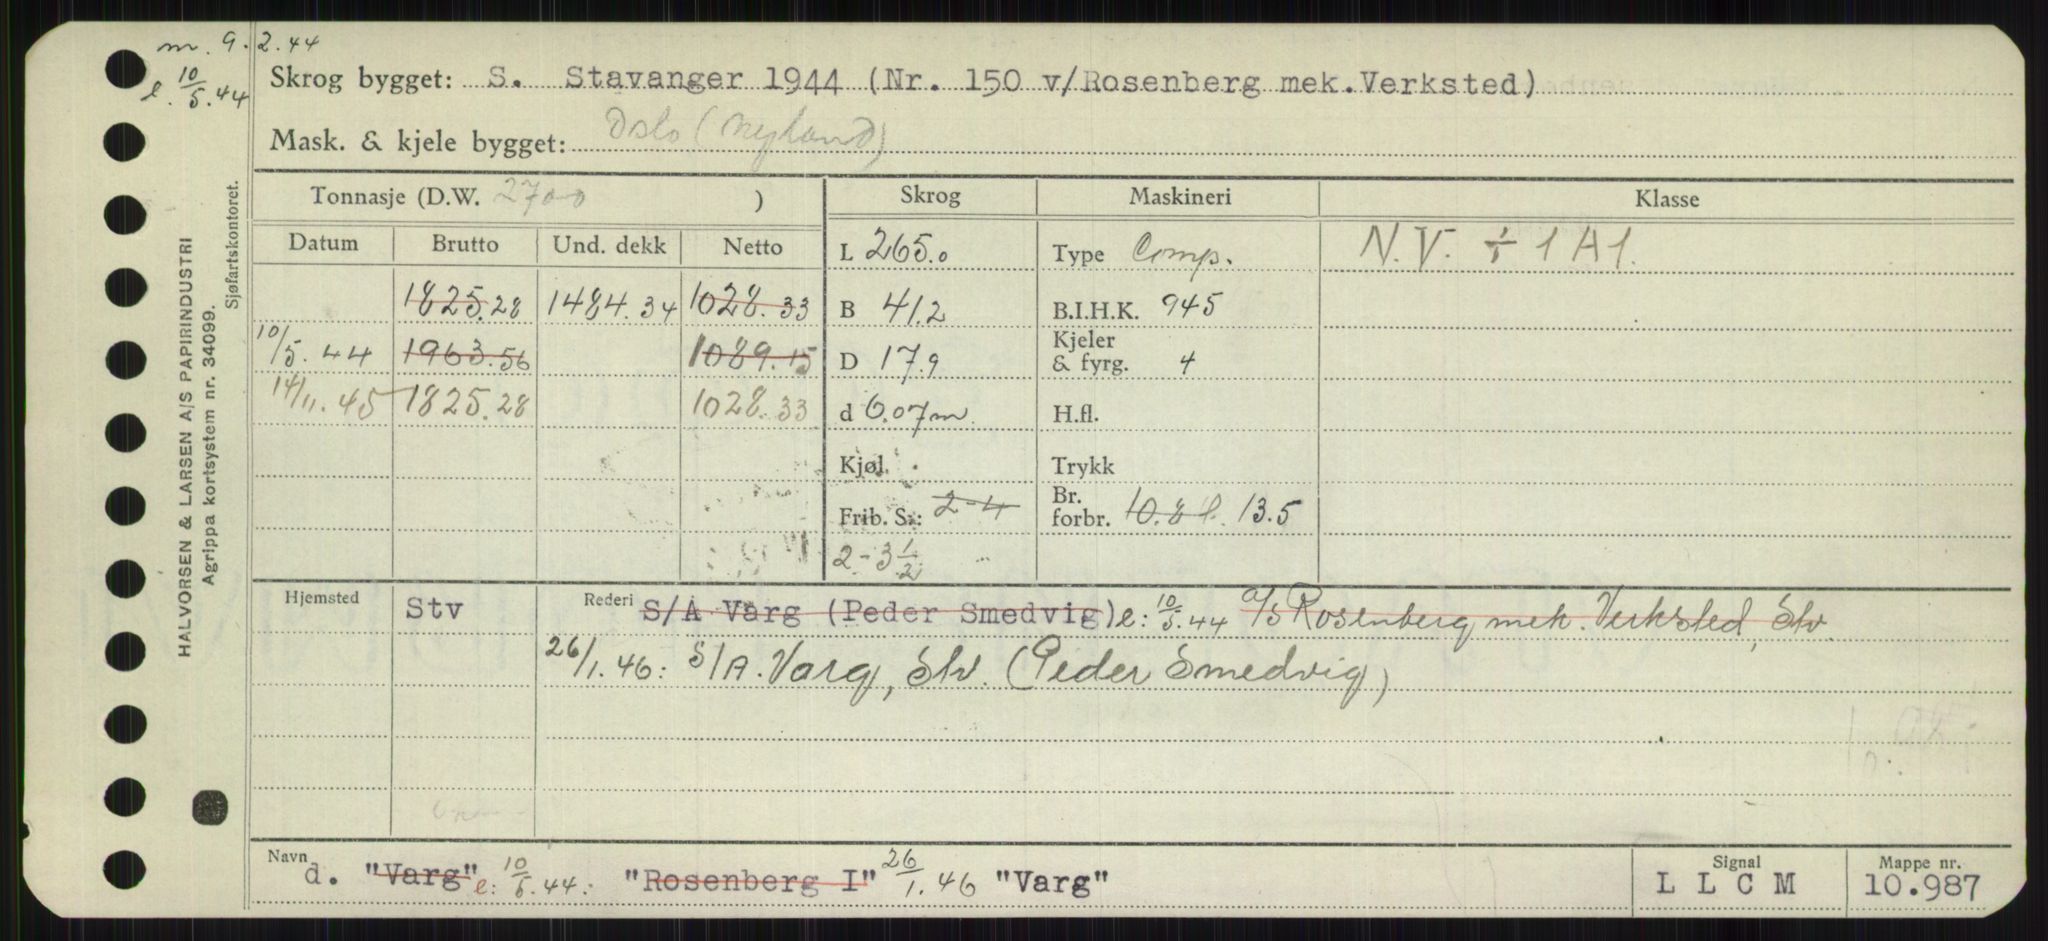 m. 9.2.44
e. 10/5.44
Skrog bygget: S. Stavanger 1944 (Nr. 150 v/Rosenberg mek.Verksted)
Mask. & kjele bygget: Oslo (Nyland)
Tonnasje (D.W. 2700 )
Skrog
Maskineri
Klasse
Datum Brutto Und. dekk Netto
L 265.0
Type Comp.
N.V. ÷ 1 A 1.
1825.28 1484.34 1028.33
B 41.2
B.I.H.K. 945
10/5.44 1963.56 1089.15
D 17.9
Kjeler
& fyrg. 4
14/11.45 1825.28 1028.33
d 6.07 m
H.fl.
Kjøl.
Trykk
Frib. S.: 2-4
Br.
forbr. 10.8 t. 13.5
2-3 1/2
Hjemsted Stv
Rederi S/A Varg (Peder Smedvig) e: 10/5.44 A/S Rosenberg mek. Verksted, Stv.
26/1.46: S/A. Varg, Stv. (Peder Smedvig)
Navn d. "Varg" e: 10/5.44: "Rosenberg I" 26/1.46 "Varg"
Signal
L L C M
Mappe nr.
10.987
HALVORSEN & LARSEN A/S PAPIRINDUSTRI
Agrippa kortsystem nr. 34099.
Sjøfartskontoret.